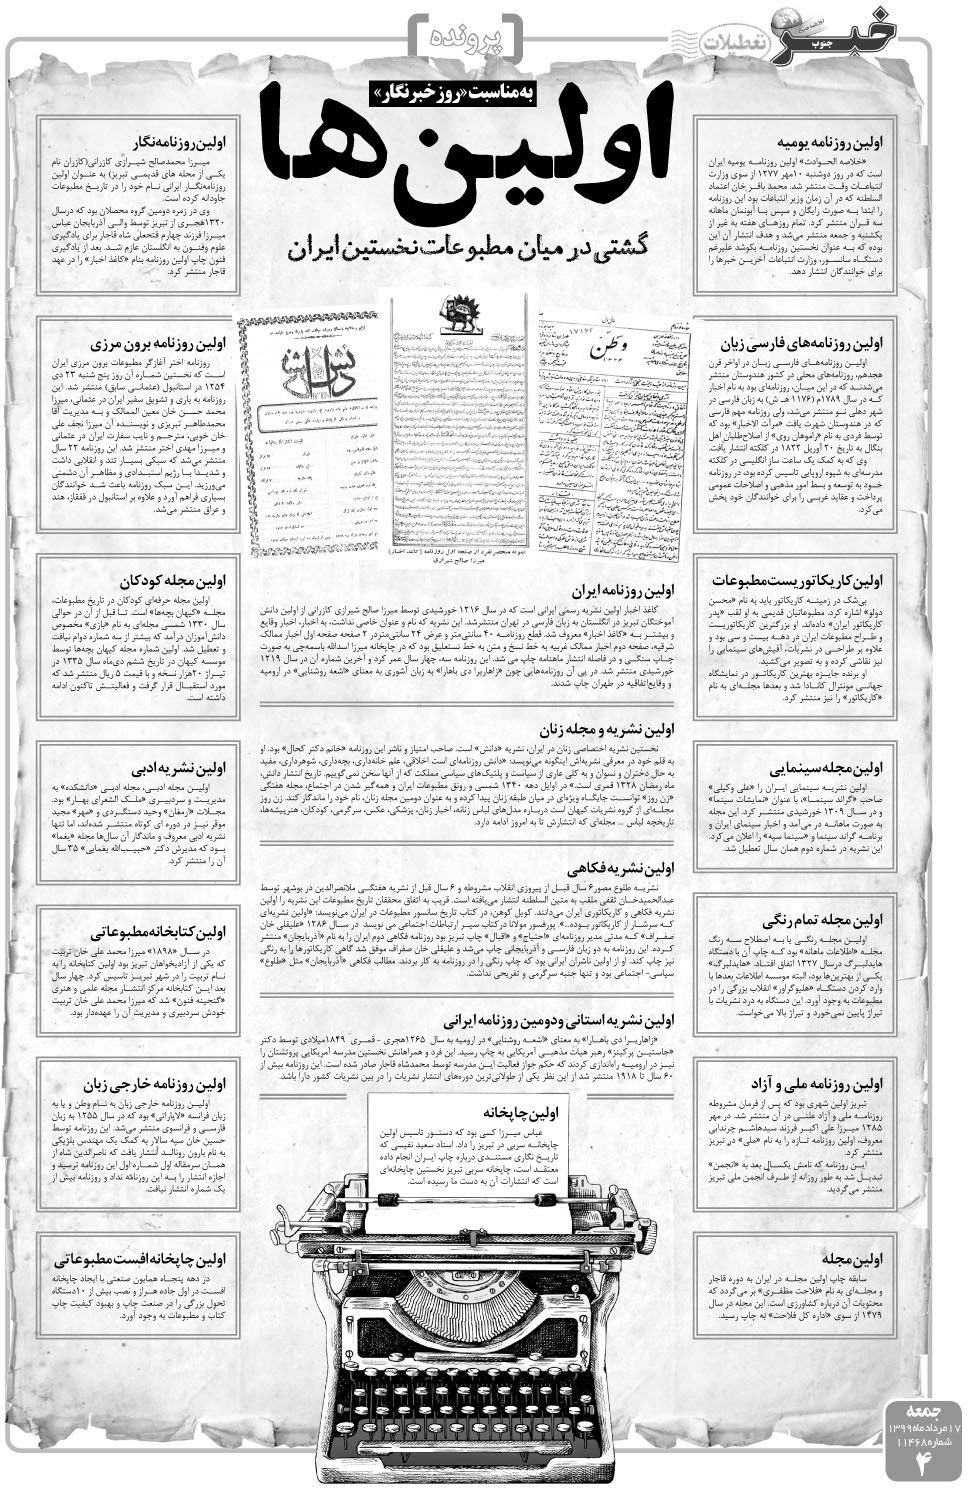 خبر جنوب
تعطیلات
پرونده
به مناسبت «روز خبرنگار»
اولین‌ها
گشتی در میان مطبوعات نخستین ایران
اولین روزنامه یومیه
«خلاصه الحوادث» اولین روزنامه یومیه ایران
است که در روز دوشنبه ۱۰مهر ۱۲۷۷ از سوی وزارت
انتباعات وقت منتشر شد. محمد باقر خان اعتماد
السلطنه که در آن زمان وزیر انتباعات بود این روزنامه
را ابتدا به صورت رایگان و سپس با آبونمان ماهانه
سه قران منتشر کرد. تمام روزهای هفته به غیر از
یکشنبه و جمعه منتشر می‌شد و هدف انتشار آن این
بوده که به عنوان نخستین روزنامه بکوشد علیرغم
دستگاه سانسور، وزارت انتباعات آخرین خبرها را
برای خوانندگان انتشار دهد.
اولین روزنامه‌های فارسی زبان
اولین روزنامه‌های فارسی زبان در اواخر قرن
هجدهم، روزنامه‌های محلی در کشور هندوستان منتشر
می‌شدند که در این میان، روزنامه‌ای بود به نام اخبار
که در سال ۱۷۸۹م (۱۱۷۶ هـ ش) به زبان فارسی در
شهر دهلی نو منتشر می‌شد، ولی روزنامه مهم فارسی
که در هندوستان شهرت یافت «مرآت الاخبار» بود که
توسط فردی به نام «راموهان روی» از اصلاح‌طلبان اهل
بنگال به تاریخ ۲۰ آوریل ۱۸۲۲ در کلکته انتشار یافت.
وی که به کمک یک ساعت ساز انگلیسی در کلکته
مدرسه‌ای به شیوه اروپایی تاسیس کرده بود، در روزنامه
خود به توسعه و بسط امور مذهبی و اصلاحات عمومی
پرداخت و عقاید غربی را برای خوانندگان خود پخش
می‌کرد.
اولین کاریکاتوریست مطبوعات
بی‌شک در زمینه کاریکاتور باید به نام «محسن
دولو» اشاره کرد. مطبوعاتیان قدیمی به او لقب «پدر
کاریکاتور ایران» داده‌اند. او بزرگترین کاریکاتوریست
و طراح مطبوعات ایران در دهه بیست و سی بود و
علاوه بر طراحی در نشریات، آفیش‌های سینمایی را
نیز نقاشی کرده و به تصویر می‌کشید.
او برنده جایزه بهترین کاریکاتور در نمایشگاه
جهانی مونترال کانادا شد و بعدها مجله‌ای به نام
«کاریکاتور» را نیز منتشر کرد.
اولین مجله سینمایی
اولین نشریه سینمایی ایران را «علی وکیلی»
صاحب «گراند سینما»، با عنوان «نمایشات سینما»
و در سال ۱۳۰۹ خورشیدی منتشر کرد. این مجله
به صورت ماهانه در می‌آمد و اخبار سینمای ایران و
برنامه گراند سینما و «سینما سپه» را اعلان می‌کرد.
این نشریه در شماره دوم همان سال تعطیل شد.
اولین مجله تمام رنگی
اولین مجله رنگی یا به اصطلاح سه رنگ
مجله «اطلاعات ماهانه» بود که چاپ آن با دستگاه
هایدلبرگ درسال ۱۳۲۷ اتفاق افتاد. «هایدلبرگ»
یکی از بهترین‌ها بود، البته موسسه اطلاعات بعدها با
وارد کردن دستگاه «هلیوگراور» انقلاب بزرگی را در
مطبوعات به وجود آورد. این دستگاه به درد نشریات با
تیراژ پایین نمی‌خورد و تیراژ بالا می‌خواست.
اولین روزنامه ملی و آزاد
تبریز اولین شهری بود که پس از فرمان مشروطه
روزنامه ملی و آزاد علنی در آن منتشر شد. در مهر
۱۲۸۵ میرزا علی اکبر فرزند سیدهاشم چرندابی
معروف، اولین روزنامه تازه را به نام «ملی» در تبریز
منتشر کرد.
این روزنامه که نامش یکسال بعد به «انجمن»
تبدیل شد به طور روزانه از طرف انجمن ملی تبریز
منتشر می‌گردید.
اولین مجله
سابقه چاپ اولین مجله در ایران به دوره قاجار
و مجله‌ای به نام «فلاحت مظفری» بر می‌گردد که
محتویات آن درباره کشاورزی است. این مجله در سال
۱۲۷۹ از سوی «اداره کل فلاحت» به چاپ رسید.
وطن
نمونه منحصر بفرد از صفحه اول روزنامه (کاغذ اخبار)
میرزا صالح شیرازی
اولین روزنامه ایران
کاغذ اخبار اولین نشریه رسمی ایرانی است که در سال ۱۲۱۶ خورشیدی توسط میرزا صالح شیرازی کازرانی از اولین دانش
آموختگان تبریز در انگلستان به زبان فارسی در تهران منتشرشد. این نشریه که نام و عنوان خاصی نداشت، به اخبار، اخبار وقایع
و بیشتر به «کاغذ اخبار» معروف شد. قطع روزنامه ۴۰ سانتی‌متر و عرض ۲۴ سانتی‌متردر ۲ صفحه صفحه اول اخبار ممالک
شرقیه، صفحه دوم اخبار ممالک غربیه به خط نسخ و متن به خط نستعلیق بود که در چاپخانه میرزا اسدالله باسمه‌چی به صورت
چاپ سنگی و در فاصله انتشار ماهنامه چاپ می شد. این روزنامه سه، چهار سال عمر کرد و آخرین شماره آن در سال ۱۲۱۹
خورشیدی منتشر شد. در پی آن روزنامه‌هایی چون «زاهاریرا دی باهارا» به زبان آشوری به معنای «اشعه روشنایی» در ارومیه
و وقایع‌اتفاقیه در طهران چاپ شدند.
اولین نشریه و مجله زنان
نخستین نشریه اختصاصی زنان در ایران، نشریه «دانش» است. صاحب امتیاز و ناشر این روزنامه «خانم دکتر کحال» بود. او
به قلم خود در معرفی نشریه‌اش اینگونه می‌نویسد: «دانش روزنامه‌ای است اخلاقی، علم خانه‌داری، بچه‌داری، شوهرداری، مفید
به حال دختران و نسوان و به کلی عاری از سیاست و پلتیک‌های سیاسی مملکت که از آنها سخن نمی‌گوییم. تاریخ انتشار دانش،
ماه رمضان ۱۳۲۸ قمری است.» در اوایل دهه ۱۳۴۰ شمسی و رونق مطبوعات ایران و همه‌گیر شدن در اجتماع، مجله هفتگی
«زن روز» توانست جایگاه ویژه‌ای در میان طبقه زنان پیدا کرده و به عنوان دومین مجله زنان، نام خود را ماندگار کند. زن روز
مجله‌ای از گروه نشریات کیهان است درباره مدل‌های لباس زنانه، اخبار زنان، پزشکی، عکس، سرگرمی، کودکان، هنرپیشه‌ها،
تاریخچه لباس ... مجله‌ای که انتشارش تا به امروز ادامه دارد.
اولین نشریه فکاهی
نشریه طلوع مصور ۶ سال قبل از پیروزی انقلاب مشروطه و ۶ سال قبل از نشریه هفتگی ملانصرالدین در بوشهر توسط
عبدالحمیدخان ثقفی ملقب به متین السلطنه انتشار می‌یافته است. قریب به اتفاق محققان تاریخ مطبوعات این نشریه را اولین
نشریه فکاهی و کاریکاتوری ایران می‌دانند. کویل کوهن، در کتاب تاریخ سانسور مطبوعات در ایران می‌نویسد: «اولین نشریه‌ای
که سرشار از کاریکاتور بوده...». پورفسور مولانا درکتاب سیر ارتباطات اجتماعی می نویسد در سال ۱۲۸۶ «علیقلی خان
صفراف» که مدتی مدیر روزنامه‌ای «احتیاج» و «اقبال» چاپ تبریز بود روزنامه فکاهی دوم ایران را به نام «آذربایجان» منتشر
کرده. این روزنامه به دو زبان فارسی و آذربایجانی چاپ می‌شد و علیقلی خان صفراف موفق شد گاهی کاریکاتورها را به رنگی
نیز چاپ کند. او از اولین ناشران ایرانی بود که چاپ رنگی را در روزنامه به کار بردند. مطالب فکاهی «آذربایجان» مثل «طلوع»
سیاسی- اجتماعی بود و تنها جنبه سرگرمی و تفریحی نداشت.
اولین نشریه استانی ودومین روزنامه ایرانی
«زاهاریرا دی باهارا» به معنای «اشعه روشنایی» در ارومیه به سال ۱۲۶۵هجری - قمری ۱۸۴۹میلادی توسط دکتر
«جاستین پرکینز» رهبر هیات مذهبی آمریکایی به چاپ رسید. این فرد و همراهانش نخستین مدرسه آمریکایی پروتشتان را
نیز در ارومیه راه‌اندازی کردند که حکم جواز فعالیت این مدرسه توسط محمدشاه قاجار صادر شده است. این روزنامه بیش از
۶۰ سال تا ۱۹۱۸ منتشر شد از این نظر یکی از طولانی‌ترین دوره‌های انتشار نشریات را در بین نشریات کشور دارا باشد.
اولین چاپخانه
عباس میرزا کسی بود که دستور تاسیس اولین
چاپخانه سربی در تبریز را داد. استاد سعید نفیسی که
تاریخ نگاری مستندی درباره چاپ ایران انجام داده
معتقد است، چاپخانه سربی تبریز نخستین چاپخانه‌ای
است که انتشارات آن به دست ما رسیده است.
اولین روزنامه‌نگار
میرزا محمدصالح شیرازی کازرانی(کازران نام
یکی از محله های قدیمی تبریز) به عنوان اولین
روزنامه‌نگار ایرانی نام خود را در تاریخ مطبوعات
جاودانه کرده است.
وی در زمره دومین گروه محصلان بود که درسال
۱۲۲۰هجری از تبریز توسط والی آذربایجان عباس
میرزا فرزند چهارم فتحعلی شاه قاجار برای یادگیری
علوم وفنون به انگلستان عازم شد. بعد از یادگیری
فنون چاپ اولین روزنامه بنام «کاغذ اخبار» را در عهد
قاجار منتشر کرد.
اولین روزنامه برون مرزی
روزنامه اختر آغازگر مطبوعات برون مرزی ایران
است که نخستین شماره آن روز پنج شنبه ۲۳ دی
۱۲۵۴ در استانبول (عثمانی سابق) منتشر شد. این
روزنامه به یاری و تشویق سفیر ایران در عثمانی، میرزا
محمد حسن خان معین الممالک و به مدیریت آقا
محمدطاهر تبریزی و نویسنده آن میرزا نجف علی
خان خویی، مترجم و نایب سفارت ایران در عثمانی
و میرزا مهدی اختر منتشر شد. این روزنامه ۲۲ سال
منتشر می‌شد که سبکی بسیار تند و انقلابی داشت
و شدیدا با رژیم استبدادی و مظاهر آن دشمنی
می‌ورزید. این سبک روزنامه باعث شد خوانندگان
بسیاری فراهم آورد و علاوه بر استانبول در قفقاز، هند
و عراق منتشر می‌شد.
اولین مجله کودکان
اولین مجله حرفه‌ای کودکان در تاریخ مطبوعات،
مجله «کیهان بچه‌ها» است. تا قبل از آن در حوالی
سال ۱۳۳۰ شمسی مجله‌ای به نام «بازی» مخصوص
دانش‌آموزان در آمد که بیشتر از سه شماره دوام نیافت
و تعطیل شد. اولین شماره مجله کیهان بچه‌ها توسط
موسسه کیهان در تاریخ ششم دی‌ماه سال ۱۳۳۵ در
تیراژ ۲۰هزار نسخه و با قیمت ۵ ریال منتشر شد که
مورد استقبال قرار گرفت و فعالیتش تاکنون ادامه
داشته است.
اولین نشریه ادبی
اولین مجله ادبی، مجله ادبی «دانشکده» به
مدیریت و سردبیری «ملک الشعرای بهار» بود.
مجلات «ارمغان» وحید دستگردی و «مهر» مجید
موقر نیز در دوره ای کوتاه منتشر شده‌اند، اما تنها
نشریه ادبی معروف و ماندگار آن سال‌ها مجله «یغما»
بود که مدیرش دکتر «حبیب‌الله یغمایی» ۳۵ سال
آن را منتشر کرد.
اولین کتابخانه مطبوعاتی
در سال «۱۸۹۸» میرزا محمد علی خان تربیت
که یکی از آزادیخواهان تبریز بود اولین کتابخانه را به
نام تربیت را در شهر تبریز تاسیس کرد. چهار سال
بعد این کتابخانه مرکز انتشار مجله علمی و هنری
«گنجینه فنون» شد که میرزا محمد علی خان تربیت
خودش سردبیری و مدیریت آن را عهده‌دار بود.
اولین روزنامه خارجی زبان
اولین روزنامه خارجی زبان به نام وطن و یا به
زبان فرانسه «لاپاراتی» بود که در سال ۱۲۵۵ به زبان
فارسی و فرانسوی منتشر می‌شد. این روزنامه توسط
حسین خان سپه سالار به کمک یک مهندس بلژیکی
به نام بارون رونالد انتشار یافت که ناصرالدین شاه از
همان سرمقاله اول شماره اول این روزنامه ترسید و
اجازه انتشار را به این روزنامه نداد و روزنامه بیش از
یک شماره انتشار نیافت.
اولین چاپخانه افست مطبوعاتی
در دهه پنجاه همایون صنعتی با ایجاد چاپخانه
افست در اول جاده هراز و نصب بیش از ۱۰دستگاه
تحول بزرگی را در صنعت چاپ و بهبود کیفیت چاپ
کتاب و مطبوعات به وجود آورد.
جمعه
۱۷ مرداد ماه ۱۳۹۹
شماره ۱۱۴۶۸
۴